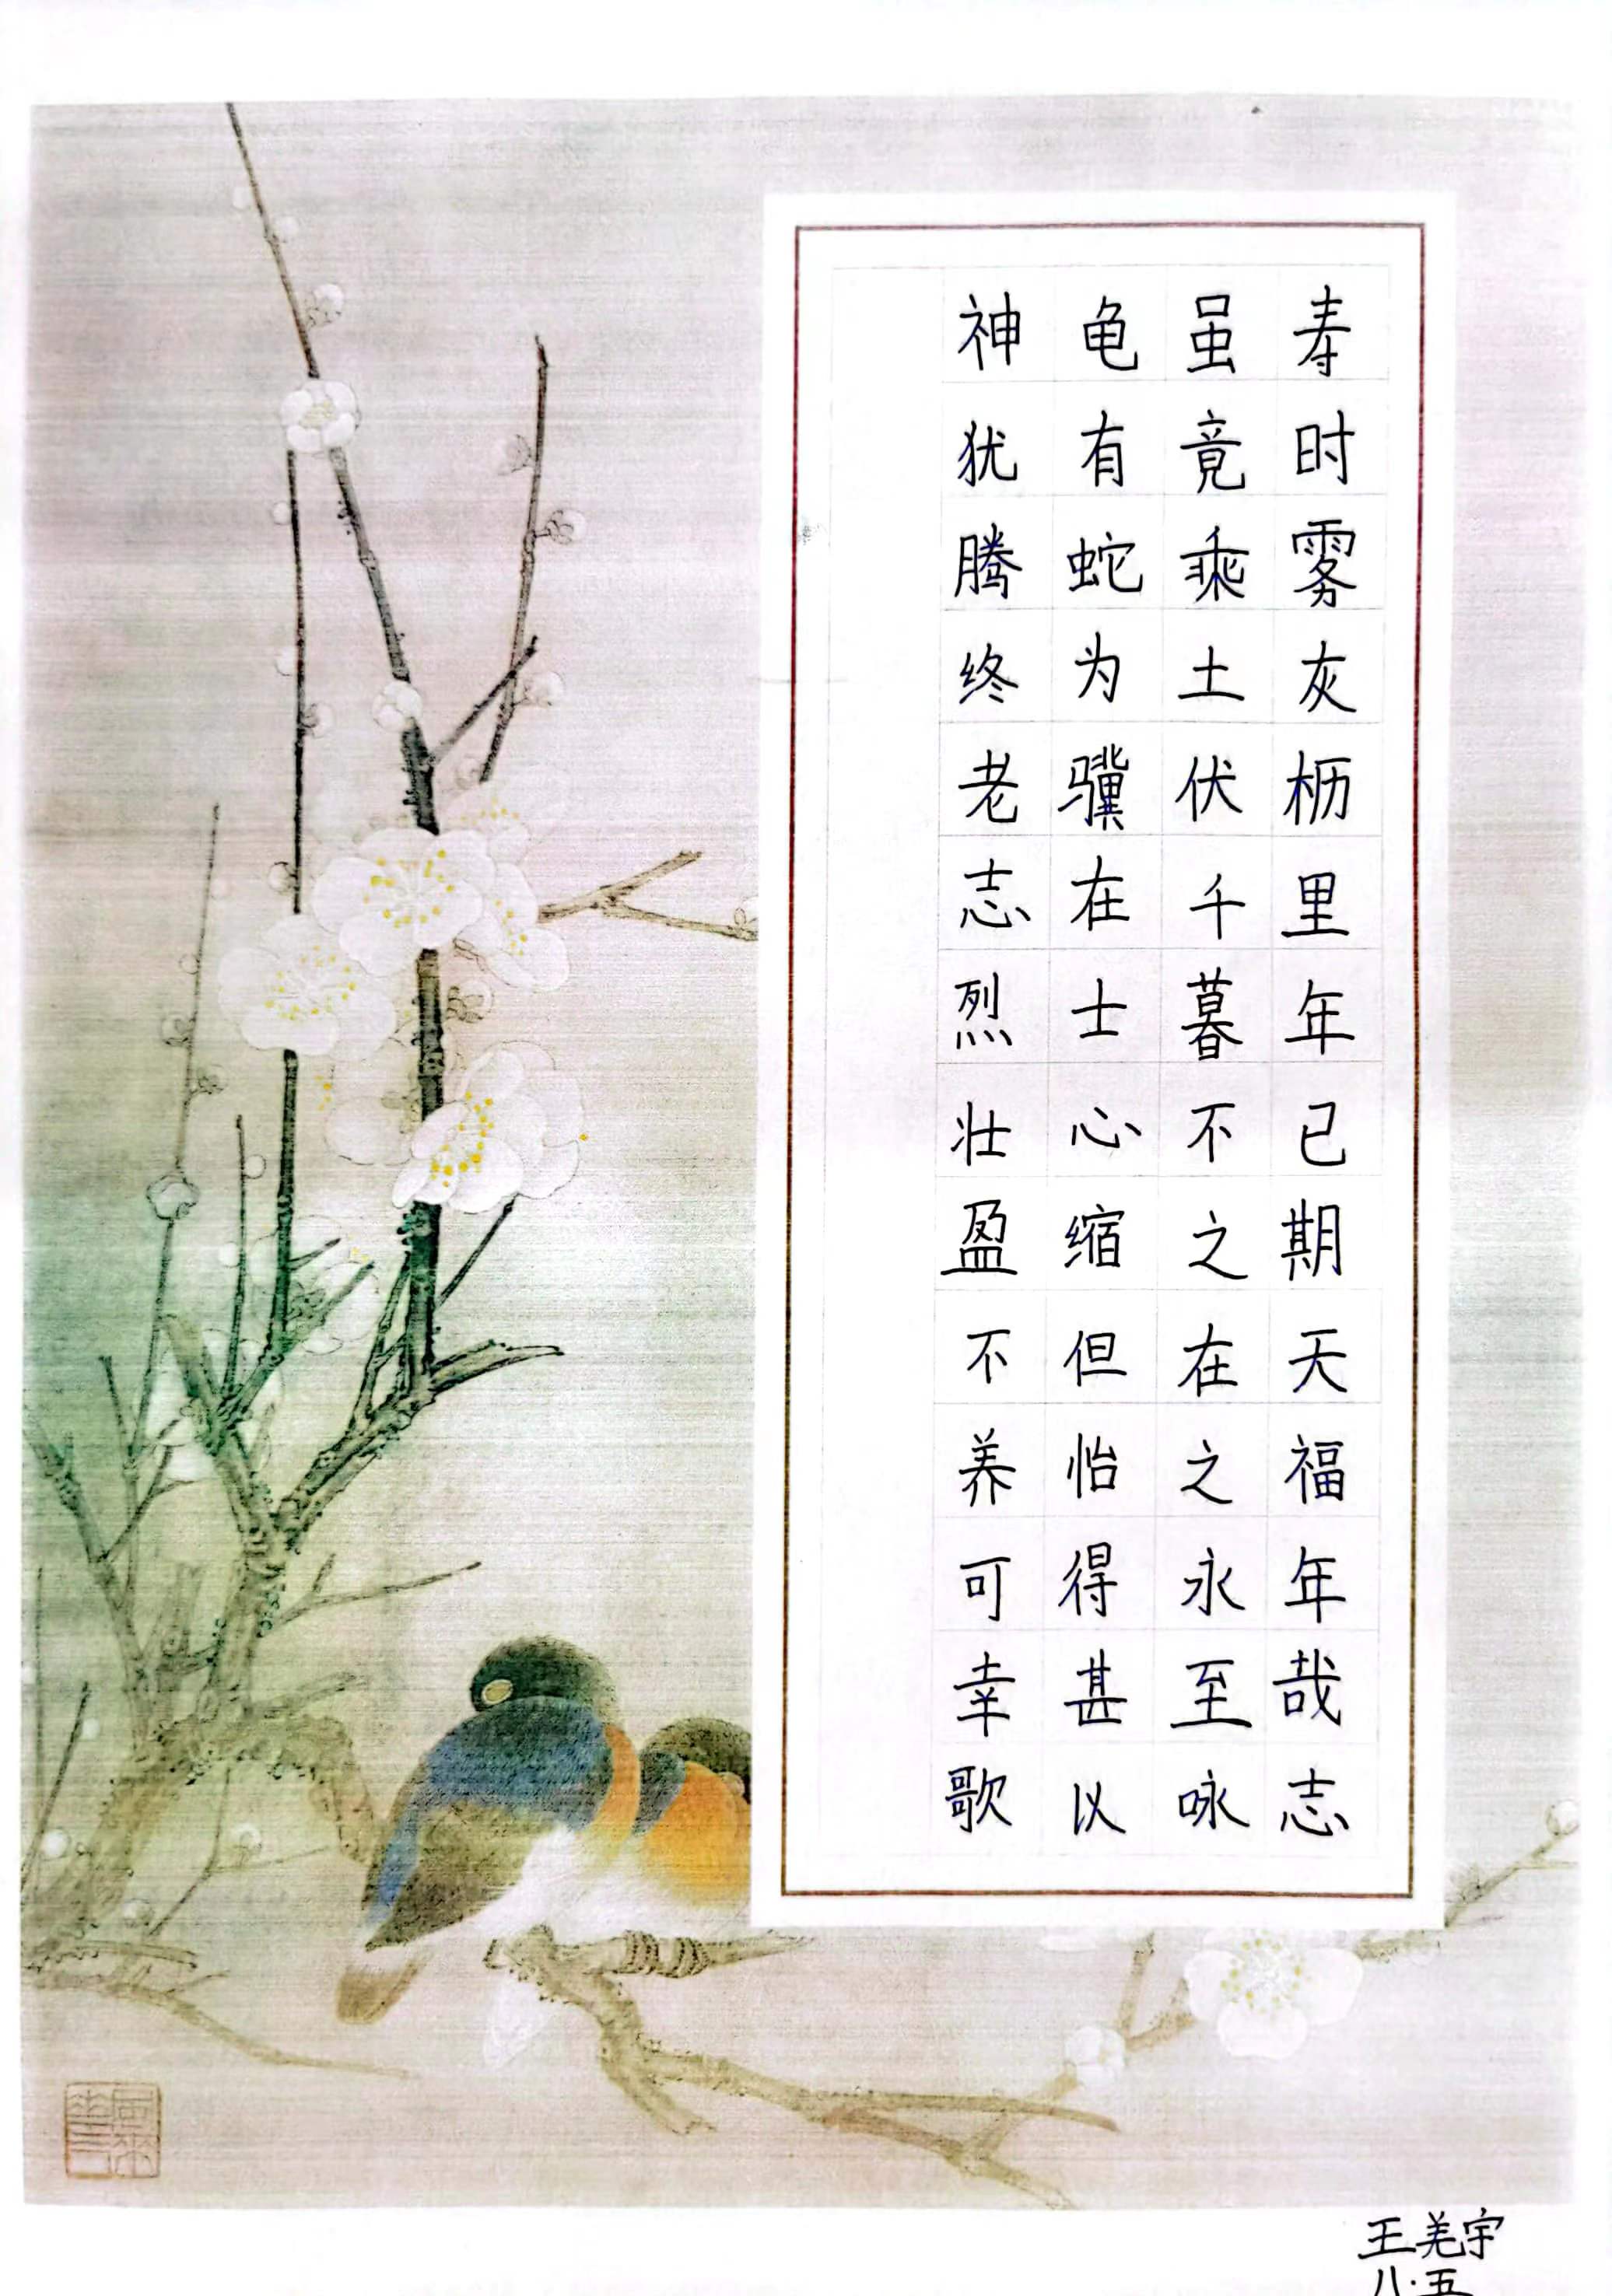 神龟虽寿
犹有竟时
腾蛇乘雾
终为土灰
老骥伏枥
志在千里
烈士暮年
壮心不已
盈缩之期
不但在天
养怡之福
可得永年
幸甚至哉
歌以咏志
王羌宇
八·五